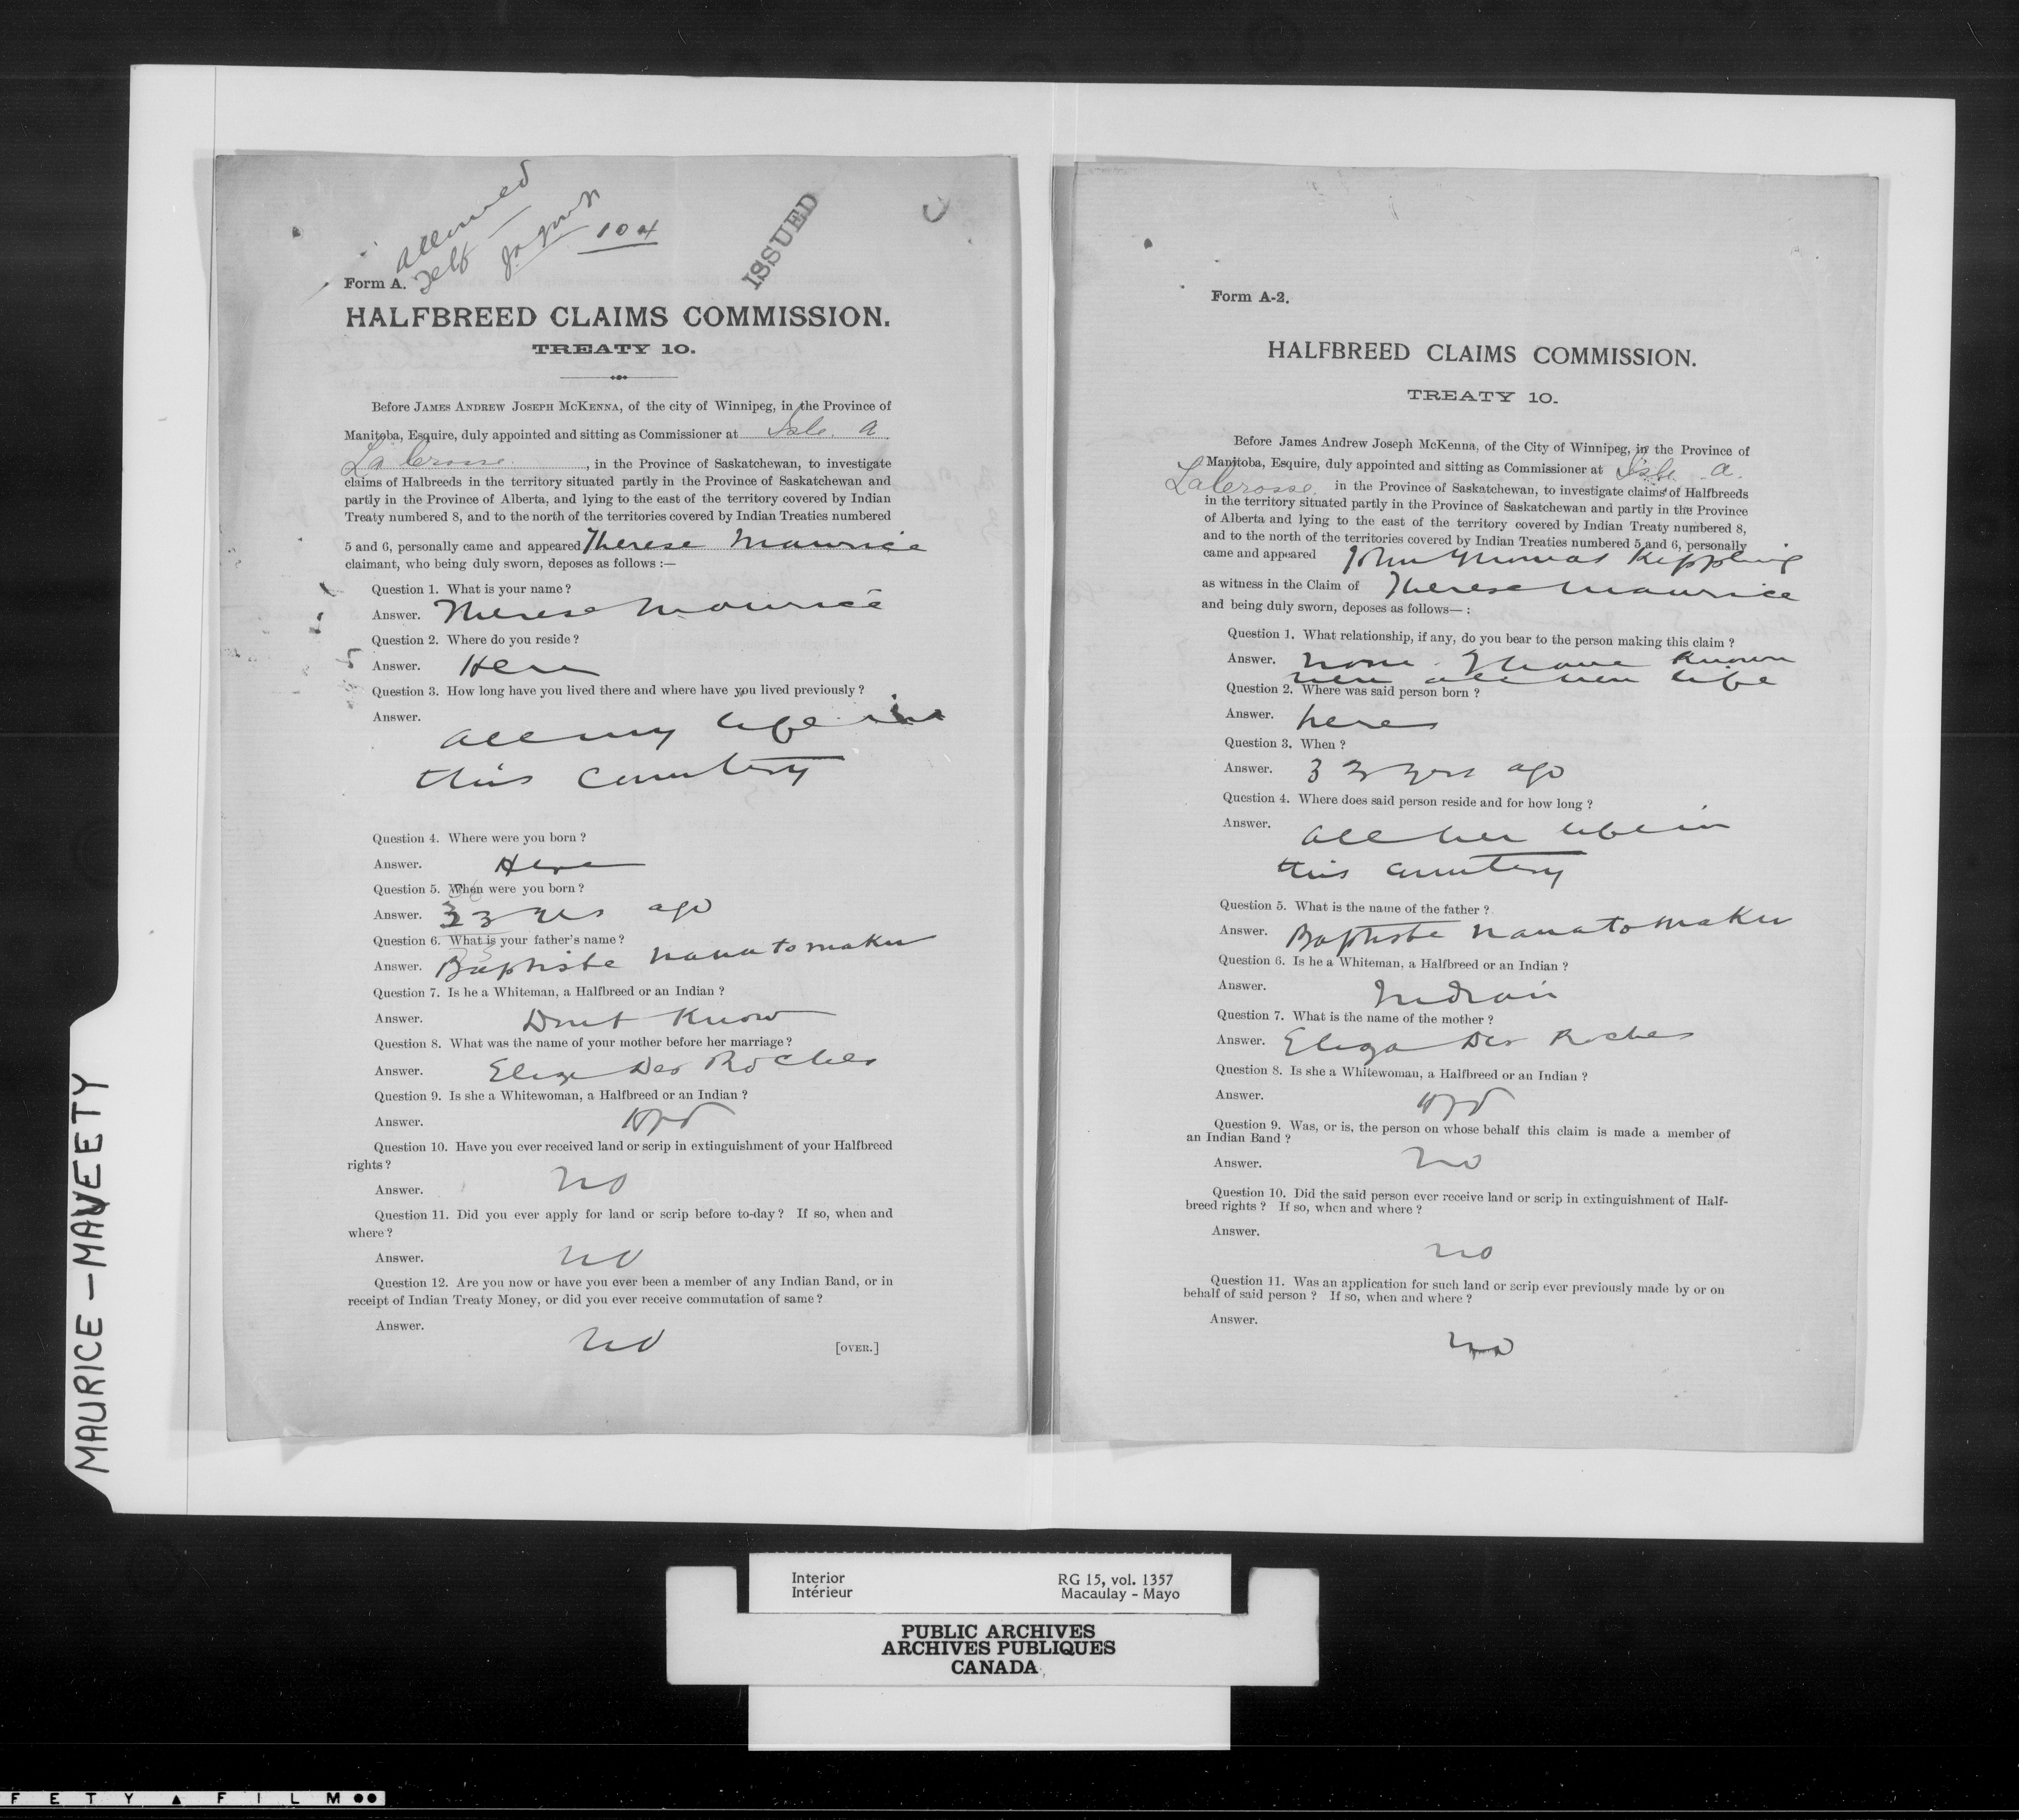 Allowed
Self
104
ISSUED
Form A.
HALFBREED CLAIMS COMMISSION.
TREATY 10.
Before JAMES ANDREW JOSEPH McKENNA, of the city of Winnipeg, in the Province of
Manitoba, Esquire, duly appointed and sitting as Commissioner at Isle a
La Crosse, in the Province of Saskatchewan, to investigate
claims of Halfbreeds in the territory situated partly in the Province of Saskatchewan and
partly in the Province of Alberta, and lying to the east of the territory covered by Indian
Treaty numbered 8, and to the north of the territories covered by Indian Treaties numbered
5 and 6, personally came and appeared Therese Maurice
claimant, who being duly sworn, deposes as follows :—
Question 1. What is your name?
Answer. Therese Maurice
Question 2. Where do you reside?
Answer. Here
Question 3. How long have you lived there and where have you lived previously?
Answer.
all my life in
this country
Question 4. Where were you born?
Answer. Here
Question 5. When were you born?
Answer. 33 yrs ago
Question 6. What is your father's name?
Answer. Baptiste Nanatomaker
Question 7. Is he a Whiteman, a Halfbreed or an Indian?
Answer. Dont Know
Question 8. What was the name of your mother before her marriage?
Answer. Eliza Des Roches
Question 9. Is she a Whitewoman, a Halfbreed or an Indian?
Answer. Hfd
Question 10. Have you ever received land or scrip in extinguishment of your Halfbreed
rights?
Answer. no
Question 11. Did you ever apply for land or scrip before to-day? If so, when and
where?
Answer. no
Question 12. Are you now or have you ever been a member of any Indian Band, or in
receipt of Indian Treaty Money, or did you ever receive commutation of same?
Answer. no
[OVER.]
Form A-2.
HALFBREED CLAIMS COMMISSION.
TREATY 10.
Before James Andrew Joseph McKenna, of the City of Winnipeg, in the Province of
Manitoba, Esquire, duly appointed and sitting as Commissioner at Isle a
La Crosse in the Province of Saskatchewan, to investigate claims of Halfbreeds
in the territory situated partly in the Province of Saskatchewan and partly in the Province
of Alberta and lying to the east of the territory covered by Indian Treaty numbered 8,
and to the north of the territories covered by Indian Treaties numbered 5 and 6, personally
came and appeared John Thomas Kippling
as witness in the Claim of Therese Maurice
and being duly sworn, deposes as follows— :
Question 1. What relationship, if any, do you bear to the person making this claim ?
Answer. none. I have known
her all her life
Question 2. Where was said person born ?
Answer. here
Question 3. When ?
Answer. 33 yrs ago
Question 4. Where does said person reside and for how long ?
Answer. all her life in
this country
Question 5. What is the name of the father ?
Answer. Baptiste Nanatomaker
Question 6. Is he a Whiteman, a Halfbreed or an Indian ?
Answer. Indian
Question 7. What is the name of the mother ?
Answer. Eliza Des Roches
Question 8. Is she a Whitewoman, a Halfbreed or an Indian ?
Answer. Hfd
Question 9. Was, or is, the person on whose behalf this claim is made a member of
an Indian Band ?
Answer. no
Question 10. Did the said person ever receive land or scrip in extinguishment of Half-
breed rights ? If so, when and where ?
Answer.
no
Question 11. Was an application for such land or scrip ever previously made by or on
behalf of said person ? If so, when and where ?
Answer.
no
MAURICE – MAVEETY
Interior
Intérieur
RG 15, vol. 1357
Macaulay - Mayo
PUBLIC ARCHIVES
ARCHIVES PUBLIQUES
CANADA
FETY FILM